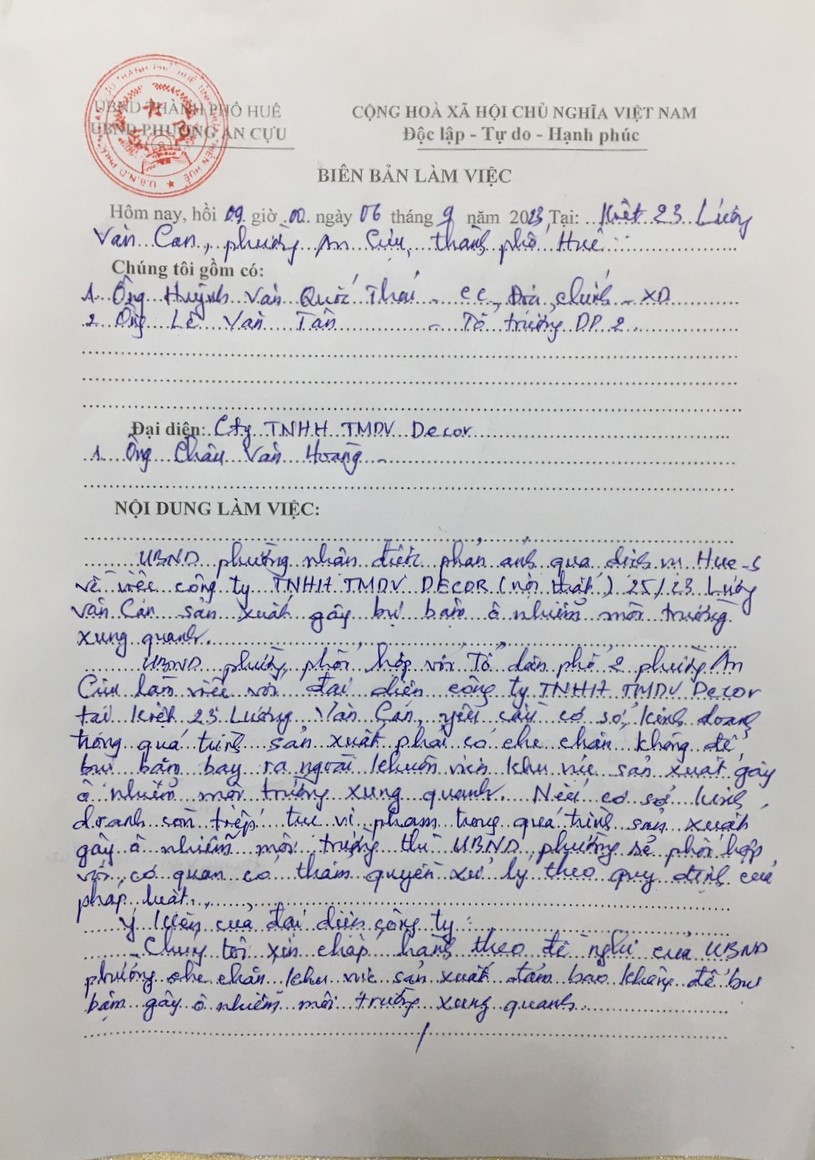 UBND THÀNH PHỐ HUẾ
UBND PHƯỜNG AN CỰU
CỘNG HOÀ XÃ HỘI CHỦ NGHĨA VIỆT NAM
Độc lập - Tự do - Hạnh phúc
BIÊN BẢN LÀM VIỆC
Hôm nay, hồi 09 giờ 00 ngày 06 tháng 9 năm 2023 Tại: Kiệt 23 Lương
Văn Can, phường An Cựu, thành phố Huế
Chúng tôi gồm có:
1. Ông Huỳnh Văn Quốc Thái - CC, Địa chính - XD
2. Ông Lê Văn Tân - Tổ trưởng DP 2.
Đại diện: Cty TNHH TMDV Decor
1. Ông Châu Văn Hoàng -
NỘI DUNG LÀM VIỆC:
UBND phường nhận được phản ánh qua dịch vụ Hue-S
về việc công ty TNHH TMDV DECOR (nội thất) 25/23 Lương
Văn Can sản xuất gây bụi bặm ô nhiễm môi trường
xung quanh.
UBND phường phối hợp với Tổ dân phố 2 phường An
Cựu làm việc với đại diện công ty TNHH TMDV Decor
tại kiệt 23 Lương Văn Can, yêu cầu cơ sở kinh doanh
trong quá trình sản xuất phải có che chắn không để
bụi bặm bay ra ngoài khuôn viên khu vực sản xuất gây
ô nhiễm môi trường xung quanh. Nếu cơ sở kinh
doanh còn tiếp tục vi phạm trong quá trình sản xuất
gây ô nhiễm môi trường thì UBND phường sẽ phối hợp
với cơ quan có thẩm quyền xử lý theo quy định của
pháp luật.
Ý kiến của đại diện công ty:
- Chúng tôi xin chấp hành theo đề nghị của UBND
phường che chắn khu vực sản xuất đảm bảo không để bụi
bặm gây ô nhiễm môi trường xung quanh.